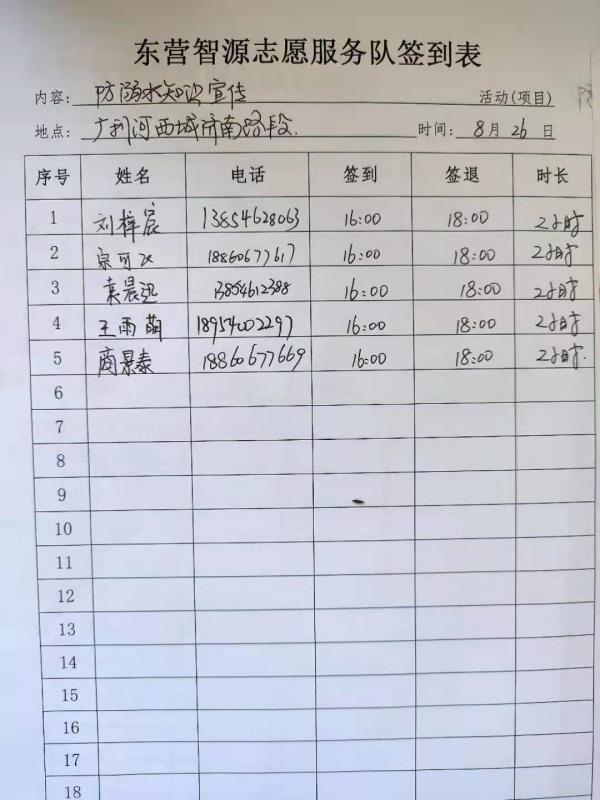 东营智源志愿服务队签到表
内容：防溺水知识宣传 活动(项目)
地点：广利河西城济南路段. 时间：8月26日
序号 姓名 电话 签到 签退 时长
1 刘梓宸 13854628063 16:00 18:00 2小时
2 18860677617 16:00 18:00 2小时
3 袁晨 13854612388 16:00 18:00 2小时
4 王雨萌 18954002297 16:00 18:00 2小时
5 商景泰 18860677669 16:00 18:00 2小时.
6
7
8
9
10
11
12
13
14
15
16
17
18